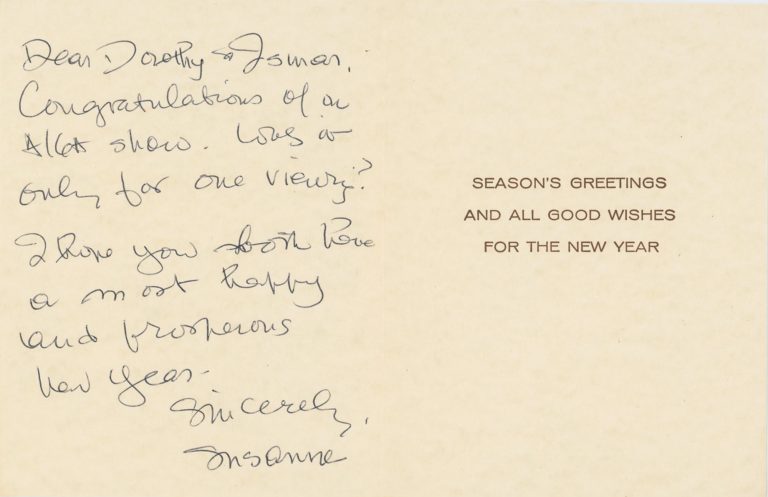 Dear Dorothy & Ismar,
Congratulations of an
AIGA show. Was it
only for one viewing?
I hope you both have
a most happy
and prosperous
new year.
Sincerely,
Susanne
SEASON'S GREETINGS
AND ALL GOOD WISHES
FOR THE NEW YEAR